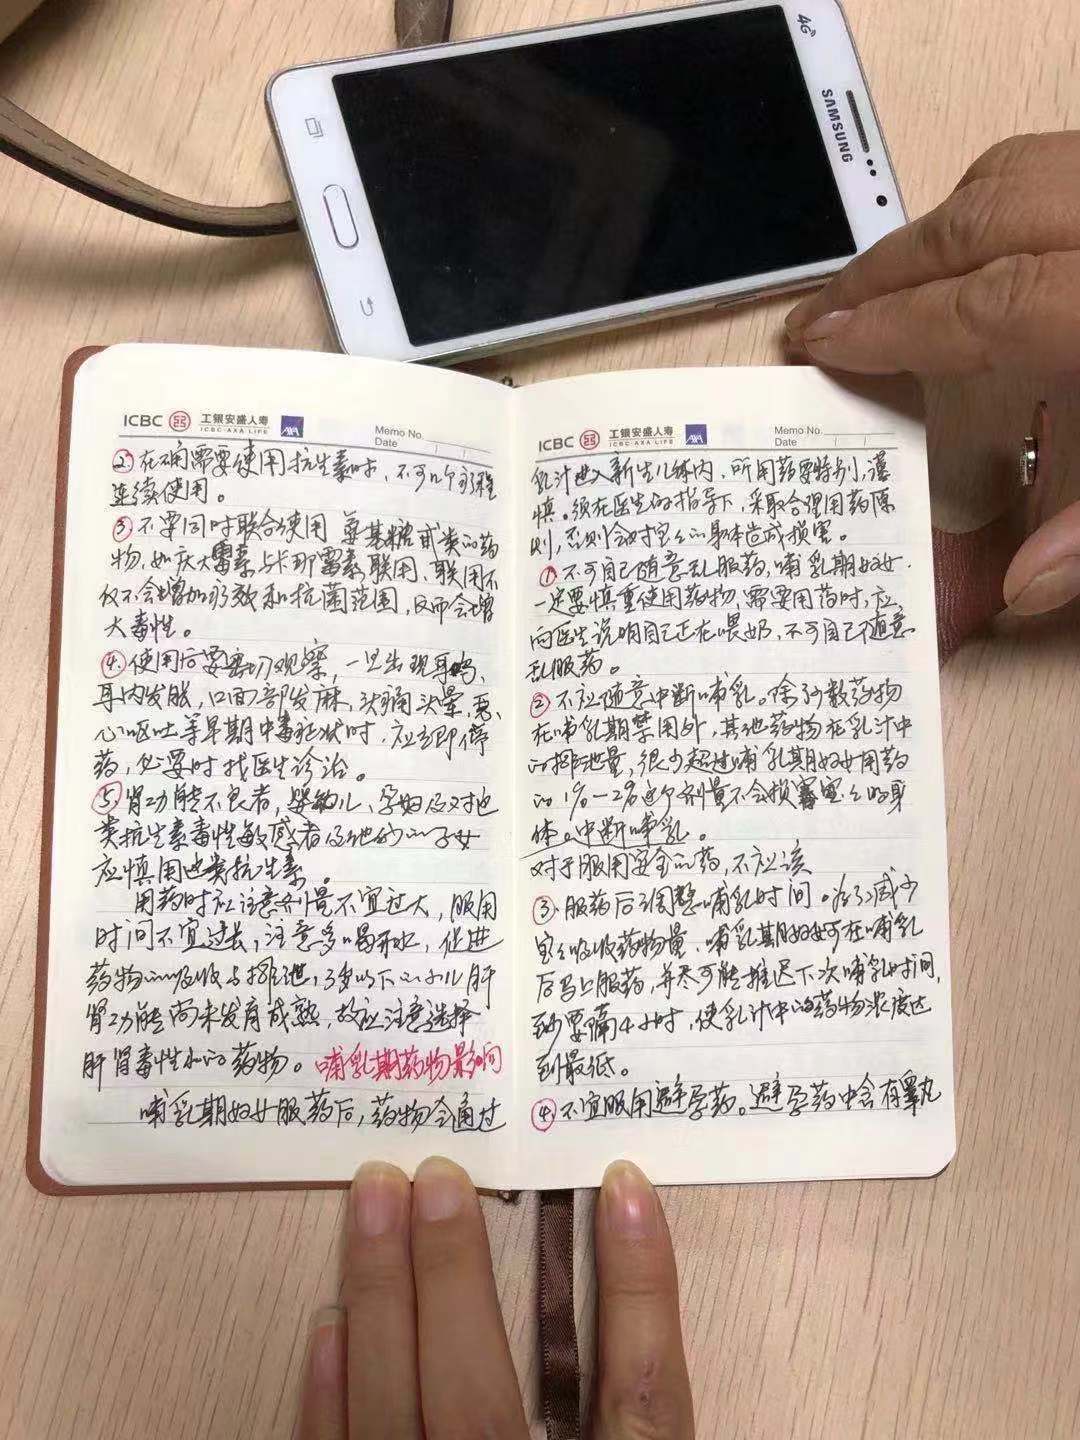 4G
SAMSUNG
ICBC 工银安盛人寿 ICBC-AXA LIFE AXA Memo No. Date
②在确需要使用抗生素时，不可几个疗程
连续使用。
③不要同时联合使用氨基糖甙类的药
物，如庆大霉素与卡那霉素联用、联用不
仅不会增加疗效和抗菌范围，反而会增
大毒性。
④使用后要密切观察，一旦出现耳鸣、
耳内发胀，口面部发麻、头痛头晕，恶
心呕吐等早期中毒症状时，应立即停
药，必要时找医生诊治。
⑤肾功能不良者，婴幼儿、孕妇及对此
类抗生素毒性敏感者及他们的子女
应慎用此类抗生素。
用药时应注意剂量不宜过大，服用
时间不宜过长，注意多喝开水，促进
药物的吸收与排泄，3岁以下的小儿肝
肾功能尚未发育成熟，故应注意选择
肝肾毒性小的药物。哺乳期药物影响
哺乳期妇女服药后，药物会通过
ICBC 工银安盛人寿 ICBC-AXA LIFE AXA Memo No. Date
乳汁进入新生儿体内、所用药要特别谨
慎。须在医生的指导下，采取合理用药原
则，否则会对宝宝的身体造成损害。
①不可自己随意乱服药，哺乳期妇女
一定要慎重使用药物，需要用药时，应
向医生说明自己正在喂奶，不可自己随意
乱服药。
②不应随意中断哺乳。除了少数药物
在哺乳期禁用外，其他药物在乳汁中
的排泄量，很少超过哺乳期妇女用药
的1%－2%这个剂量不会损害宝宝的身
体。中断哺乳。
对于服用安全的药，不应该
③服药后调整哺乳时间。为了减少
宝宝吸收药物量，哺乳期妇女可在哺乳
后马上服药，并尽可能推迟下次哺乳时间，
至少要隔4小时，使乳汁中的药物浓度达
到最低。
④不宜服用避孕药。避孕药中含有睾丸